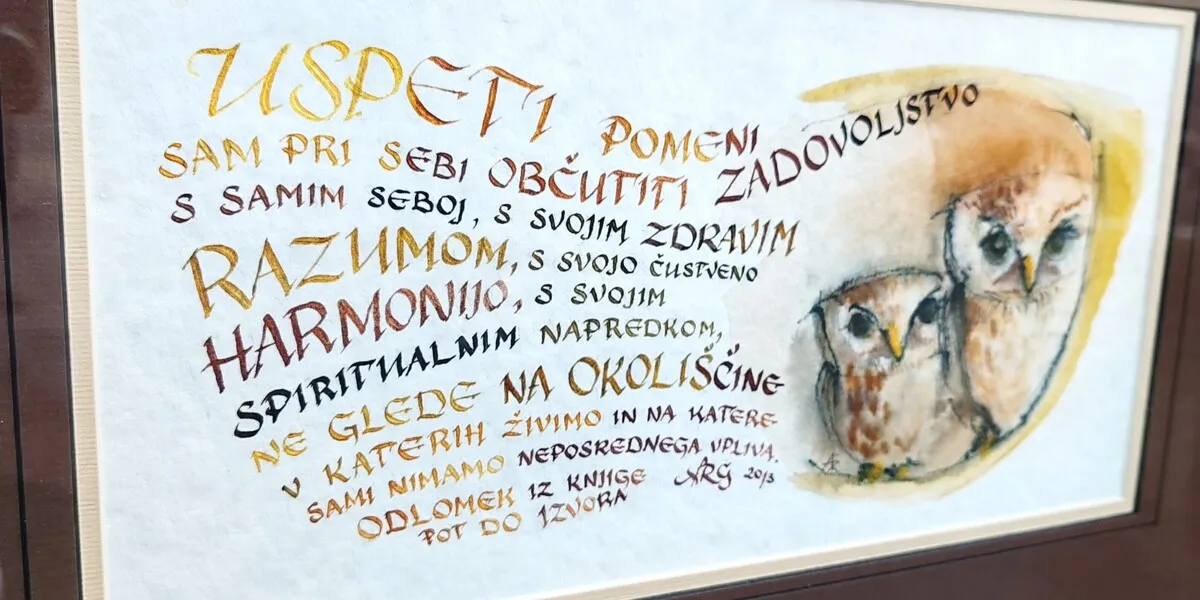 USPETI POMENI
SAM PRI SEBI OBČUTITI ZADOVOLJSTVO
S SAMIM SEBOJ, S SVOJIM ZDRAVIM
RAZUMOM, S SVOJO ČUSTVENO
HARMONIJO, S SVOJIM
SPIRITUALNIM NAPREDKOM,
NE GLEDE NA OKOLIŠČINE
V KATERIH ŽIVIMO IN NA KATERE
SAMI NIMAMO NEPOSREDNEGA VPLIVA.
ODLOMEK IZ KNJIGE ARG 2013
POT DO IZVORA